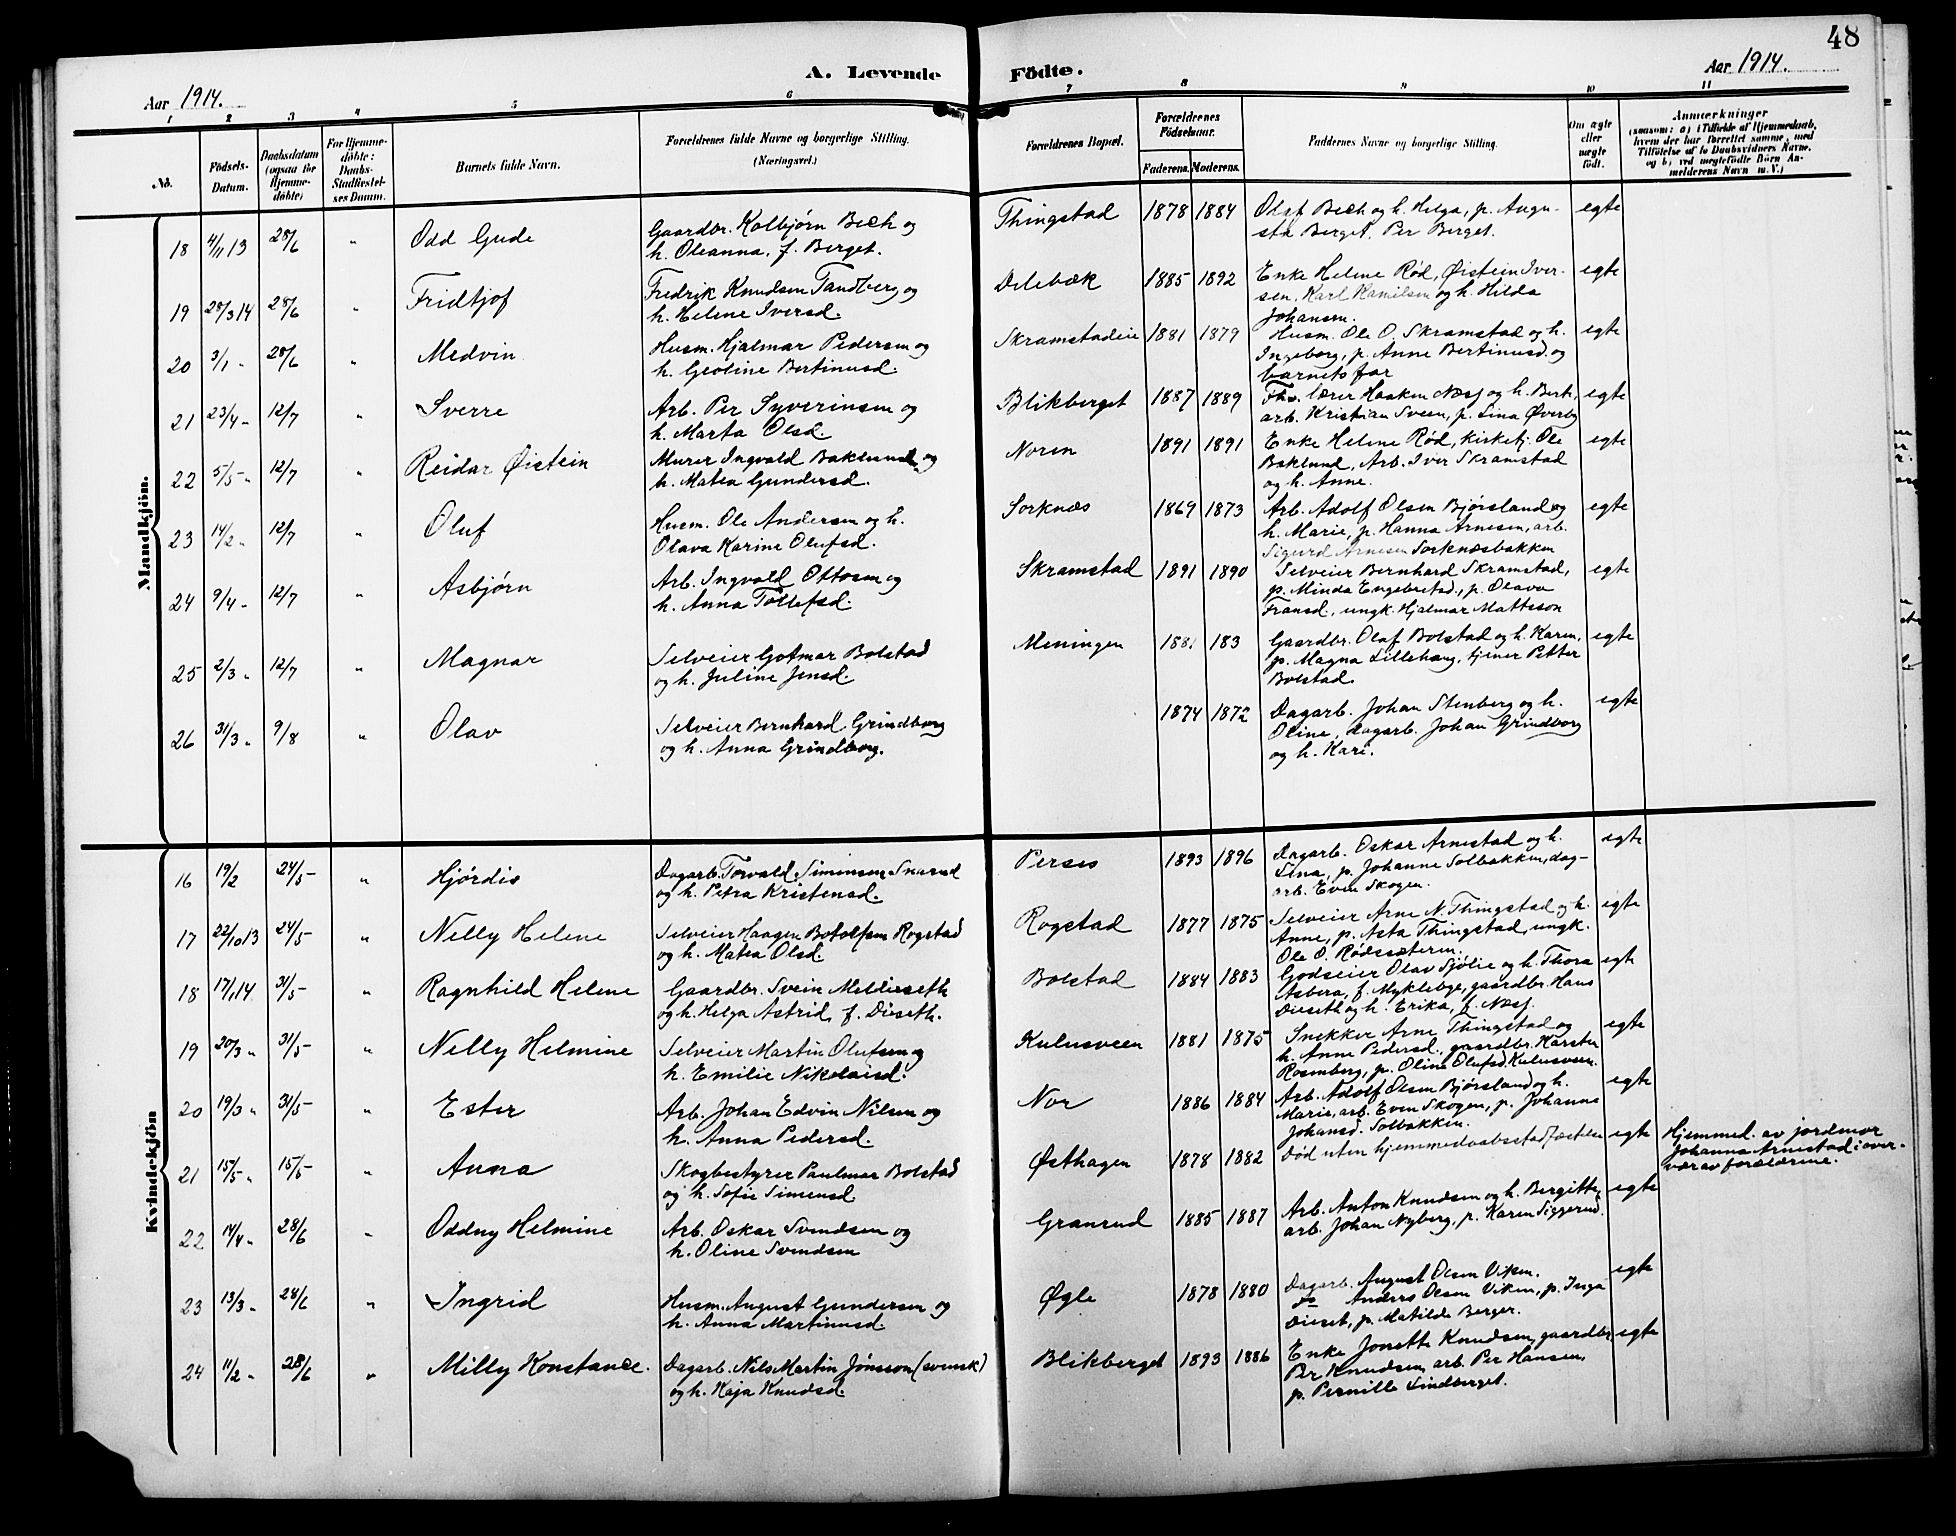 48
A. Levende Födte.
Aar 1914.
Aar 1914.
1 2 3 4 5 6 7 8 9 10 11
No.
Födsels-
Datum.
Daabsdatum
(ogsaa for
Hjemme-
döbte)
For Hjemme-
döbte:
Daabs-
Stadfæstel-
ses Datum.
Barnets fulde Navn.
Forældrenes fulde Navne og borgerlige Stilling.
(Næringsvei.)
Forældrenes Bopæl.
Forældrenes
Födselsaar.
Faderens. Moderens.
Faddernes Navne og borgerlige Stilling.
Om ægte
eller
uægte
født.
Anmærkninger
(saasom: a) i Tilfælde af Hjemmedaab,
hvem der har forrettet samme, med
Tilføielse af to Daabsvidners Navne,
og b) ved uægtefödte Börn An-
melderens Navn m. V.)
Mandkjön.
18 4/11 13 28/6 " Odd Gude
Gaardbr. Kolbjörn Bech og
h. Oleanna, f. Berget.
Thingstad 1878 1884
Olaf Bech og h. Helga, p. Augu-
sta Berget. Per Berget.
egte
19 28/3 14 28/6 " Fridtjof
Fredrik Knudsen Tandberg og
h. Helene Iversd.
Delebæk 1885 1892
Enke Helene Rød, Øistein Iver-
sen, Karl Kamilsen og h. Hilda
Johansen.
egte
20 3/1 " 28/6 " Medvin
Husm. Hjalmar Pedersen og
h. Geoline Bertinusd.
Skramstadeie 1881 1879
Husm. Ole O. Skramstad og h.
Ingeborg, p. Anne Bertinusd. og
barnets far
egte
21 23/4 " 12/7 " Sverre
Arb. Per Syverinsen og
h. Marta Olsd.
Blikberget 1887 1889
lærer Haaken Næss og h. Berth,
arb. Kristian Sveen, p. Lina Øverby
egte
22 5/5 " 12/7 " Reidar Øistein
Murer Ingvald Baklund og
h. Matea Gundersd.
Noren 1891 1891
Enke Helene Rød, kirketj. Ole
Baklund, Arb. Iver Skramstad
og h. Anne.
egte
23 14/2 " 12/7 " Oluf
Husm. Ole Andersen og h.
Olava Karine Olufsd.
Sorknæs 1869 1873
Arb. Adolf Olsen Bjørsland og
h. Marie, p. Hanna Arnesen, arb.
Sigurd Arnesen Sorknæsbakken
egte
24 9/4 " 12/7 " Asbjørn
Arb. Ingvald Ottosen og
h. Anna Tollefsd.
Skramstad 1891 1890
Selveier Bernhard Skramstad,
p. Minda Engebretsd., p. Olava
Fransd., ungk. Hjalmar Mattsson
egte
25 2/3 " 12/7 " Magnar
Selveier Gotmar Bolstad
og h. Juline Jensd.
Meningen 1881 183
Gaardbr. Olaf Bolstad og h. Karen,
p. Magna Lillehaug, tjener Petter
Bolstad.
egte
26 31/3 " 9/8 " Olav
Selveier Bernhard Grindborg
og h. Anna Grindborg.
1874 1872
Dagarb. Johan Stenberg og h.
Oline, dagarb. Johan Grindborg
og h. Kari.
egte
Kvindekjön
16 19/2 24/5 " Hjördis
Dagarb. Torvald Simensen Snarud
og h. Petra Kristensd.
Perses 1893 1896
Dagarb. Oskar Arnestad og h.
Lina, p. Johanne Solbakken, dag-
arb. Even Skogen.
egte
17 22/10 13 24/5 " Nelly Helene
Selveier Haagen Botolfsen Rogstad
og h. Matea Olsd.
Rogstad 1877 1875
Selveier Arne N. Thingstad og h.
Anne, p. Asta Thingstad, ungk.
Ole O. Rødssæteren.
egte
18 17/1 14 31/5 " Ragnhild Helene
Gaardbr. Svein Meldieseth
og h. Helga Astrid, f. Dieseth.
Bolstad 1884 1883
Godseier Olav Sjølie og h. Thora
Asbera, f. Myklebye, gaardbr. Hans
Dieseth og h. Erika, f. Næss.
egte
19 20/3 " 31/5 " Nelly Helmine
Selveier Martin Olufsen og
h. Emilie Nikolaisd.
Kulusveen 1881 1875
Snekker Arne Thingstad og
h. Anne Pedersd., gaardbr. Karsten
Rosenberg, p. Oline Olufsd. Kulusveen.
egte
20 19/3 " 31/5 " Ester
Arb. Johan Edvin Nilsen og
h. Anna Pedersd.
Nor 1886 1884
Arb. Adolf Olsen Bjørsland og h.
Marie, arb. Even Skogen, p. Johanne
Johansd. Solbakken.
egte
21 15/5 " 15/5 " Anna
Skogbestyrer Paulmar Bolstad
og h. Sofie Simensd
Østhagen 1878 1882
Død uten hjemmedaabsstadfæstelse
egte
Hjemmed. av jordmor
Johanna Arnestad i over-
vær av forældrene.
22 14/4 " 28/6 " Oddny Helmine
Arb. Oskar Svendsen og
h. Oline Svendsen
Granrud 1885 1887
Arb. Anton Knudsen og h. Bergitte,
arb. Johan Nyberg, p. Karen Siggerud.
egte
23 13/3 " 28/6 " Ingrid
Husm. August Gundersen og
h. Anna Martinusd.
Øgle 1878 1880
Dagarb. August Olsen Viken.
do Anders Olsen Viken, p. Inga
Dieset, p. Matilde Berger.
egte
24 11/2 " 28/6 " Milly Konstance.
Dagarb. Nils Martin Jönsson (svensk)
og h. Kaja Knudsd.
Blikberget 1893 1886
Enke Jonette Knudsen, gaardbr.
Per Knudsen, arb. Per Hansen,
p. Pernille Lindberget.
egte